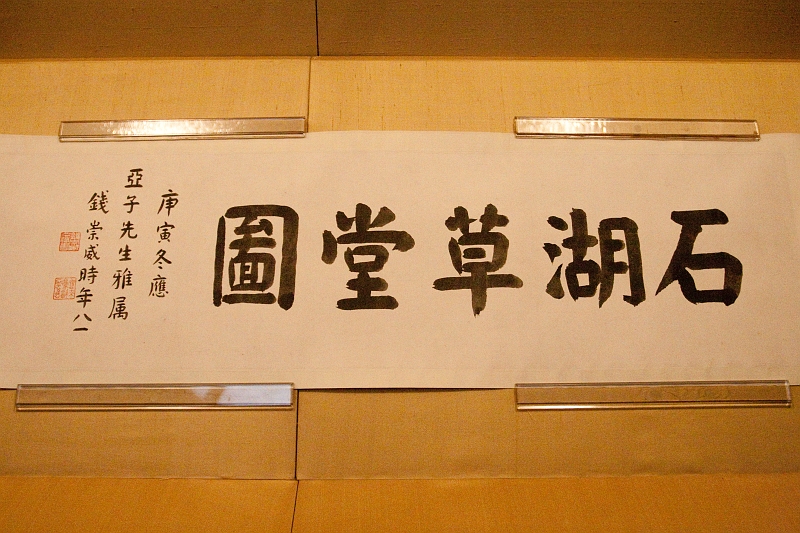 石湖草堂圖
庚寅冬應
亞子先生雅属
錢崇威時年八一